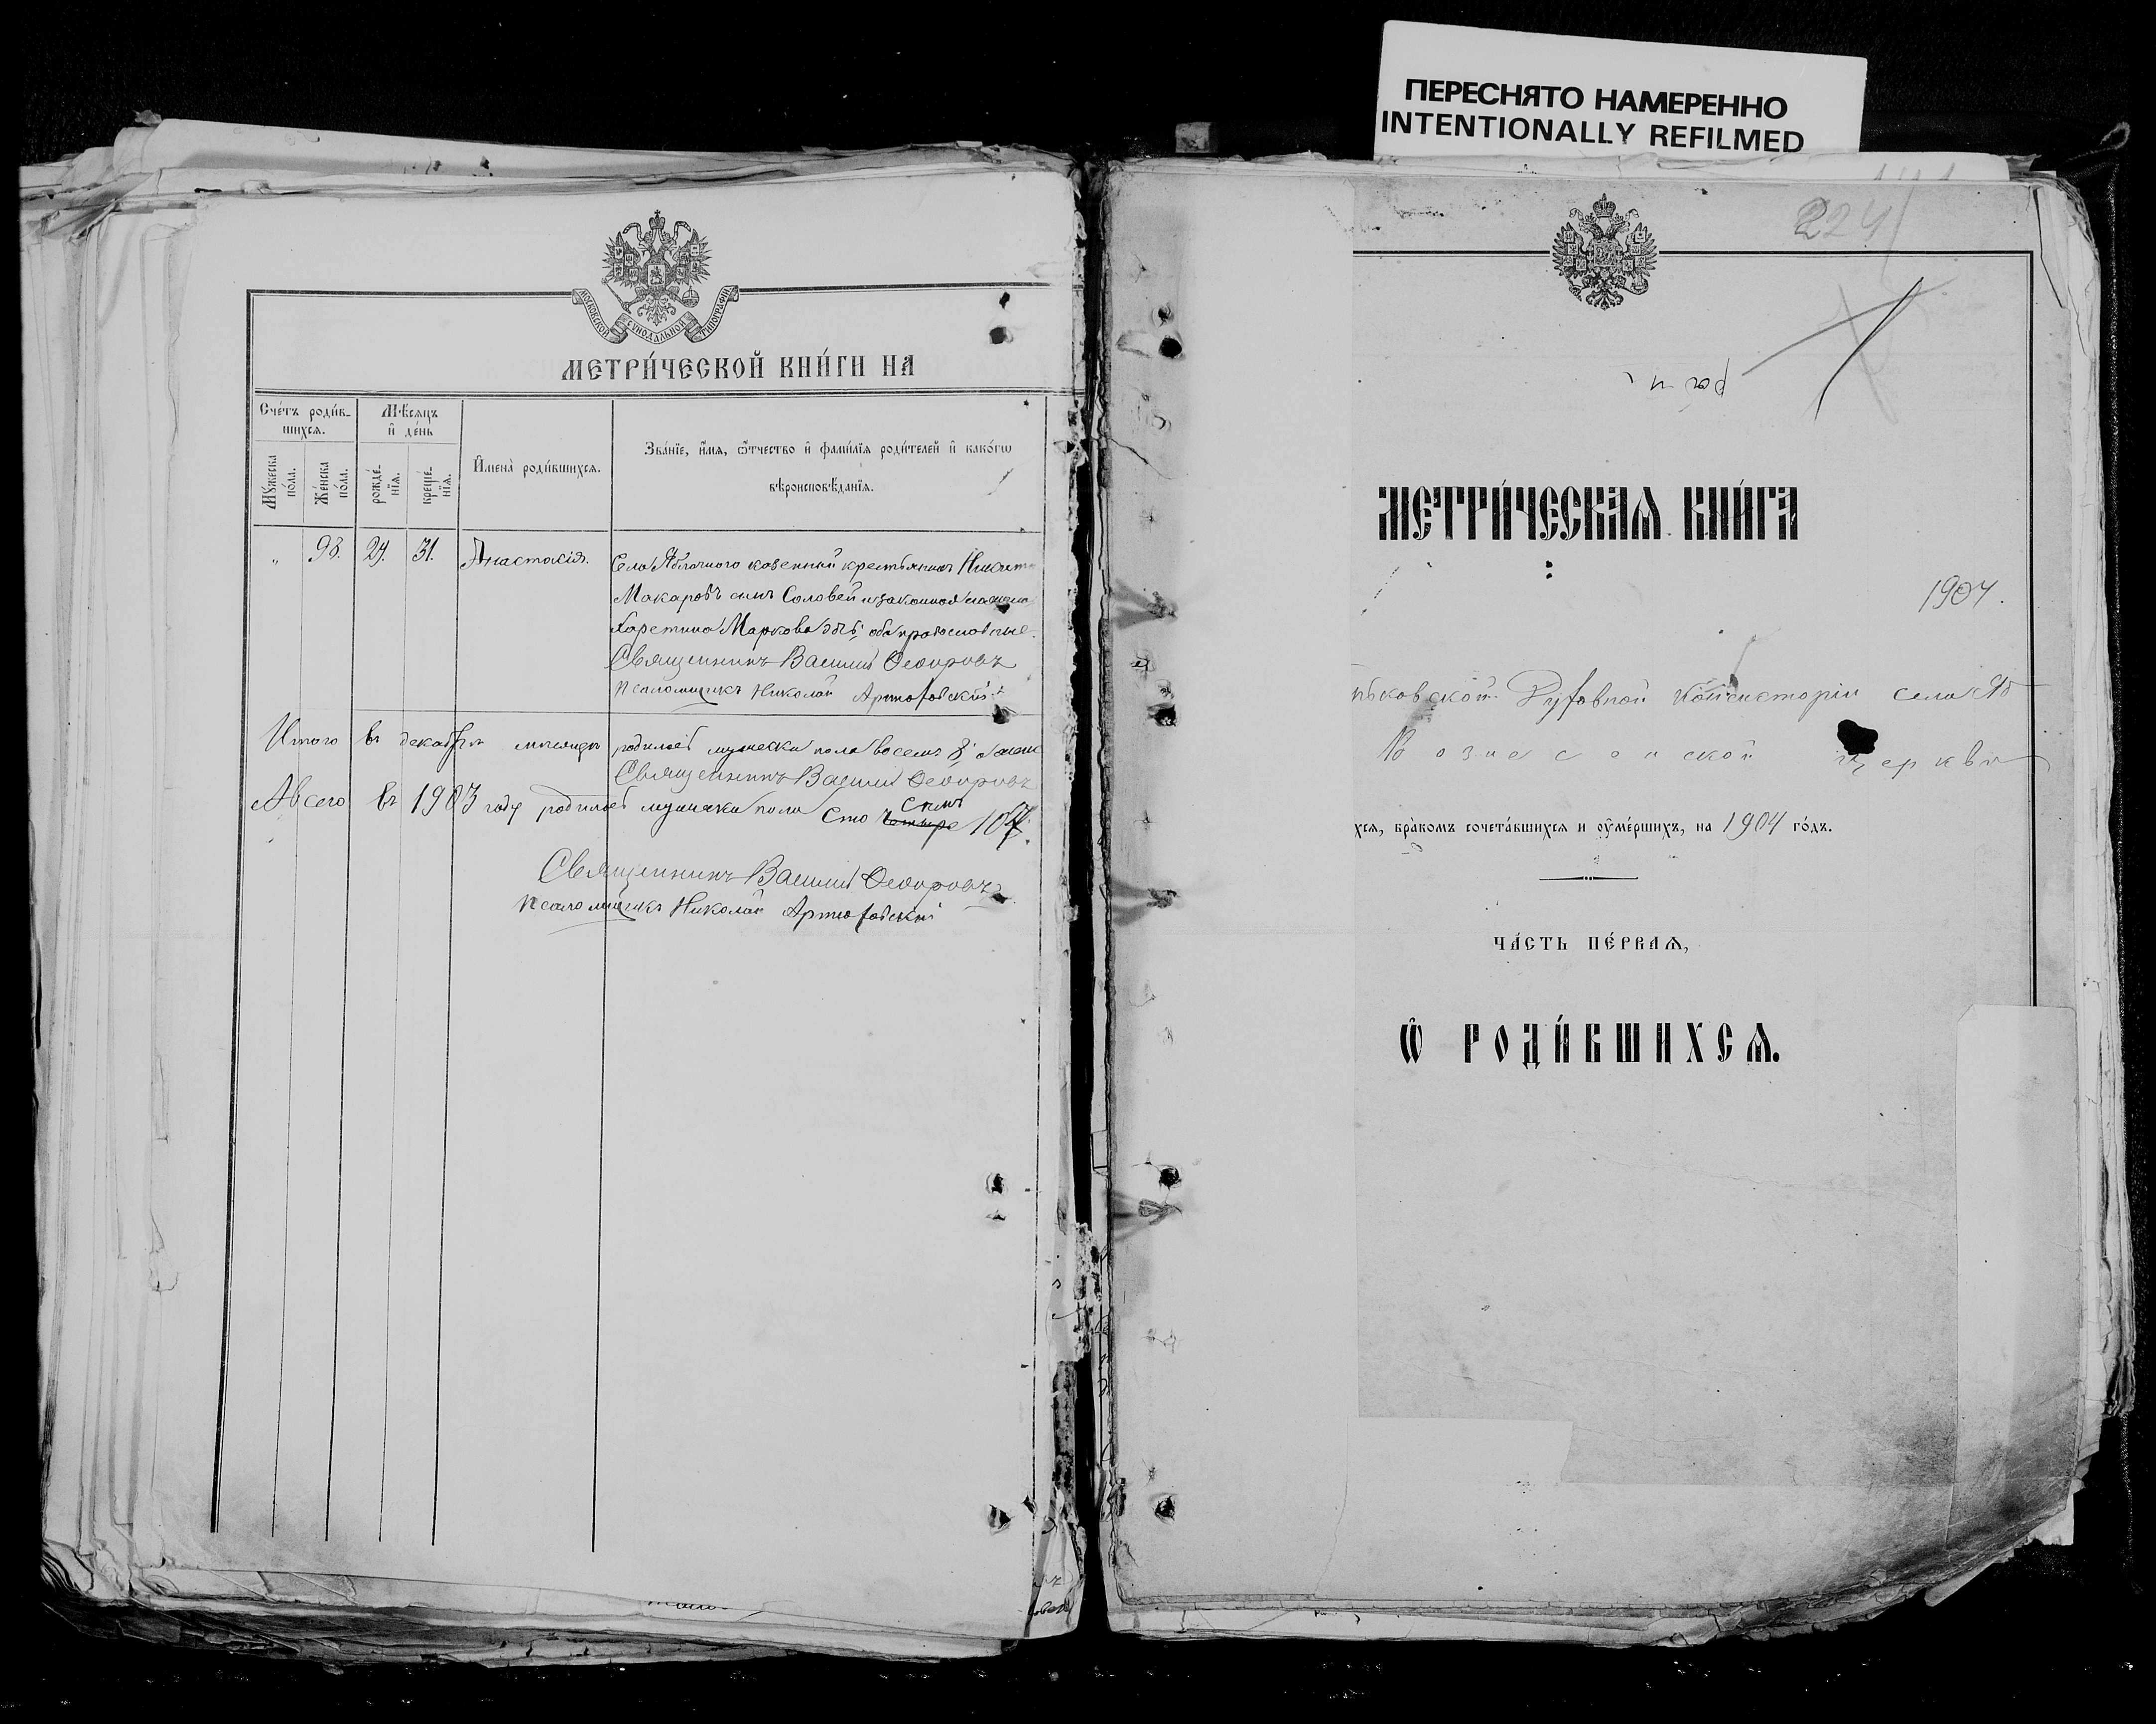 ПЕРЕСНЯТО НАМЕРЕННО
INTENTIONALLY REFILMED
МОСКОВСКОЙ СУНОДАЛЬНОЙ ТИПОГРАФІИ
МЕТРИ́ЧЕСКОЙ КНИ́ГИ НА
Сче́тъ роди́в-
шихся.
Мѣ́сяцъ
и҆ де́нь
Му́жеска
по́ла.
Же́нска
по́ла.
рожде́-
нїя.
креще́-
нїя.
И҆мена̀ роди́вшихся.
Зва́нїе, и҆́мя, ѻ҆́тчество и҆ фами́лїя роди́телей и҆ како́гѡ
вѣроисповѣ́данїя.
„ 98. 29. 31. Анастасія. Села Яблочного казенный крестьянинъ Никита
Макаровъ сынъ Соловей и законная жена его
Харетина Маркова оба православные.
Священникъ Василій Ѳедоровъ
Псаломщикъ Николай Артюховскій
Итого въ декабрѣ мѣсяцѣ родилось мужеска пола восемь 8
Священникъ Василій Ѳедоровъ
А всего въ 1903 году родилось мужеска пола сто семь четыре 107.
Священникъ Василій Ѳедоровъ
Псаломщикъ Николай Артюховскій
224
МЕТРИ́ЧЕСКАЯ КНИ́ГА
1904.
ьковской Духовной Консисторіи села Яб
Вознесенской Церкви
хся, бра́комъ сочета́вшихся и оу҆ме́ршихъ, на 1904 го́дъ.
ЧА́СТЬ ПЕ́РВАЯ,
Ѡ҆ РОДИ́ВШИХСЯ.